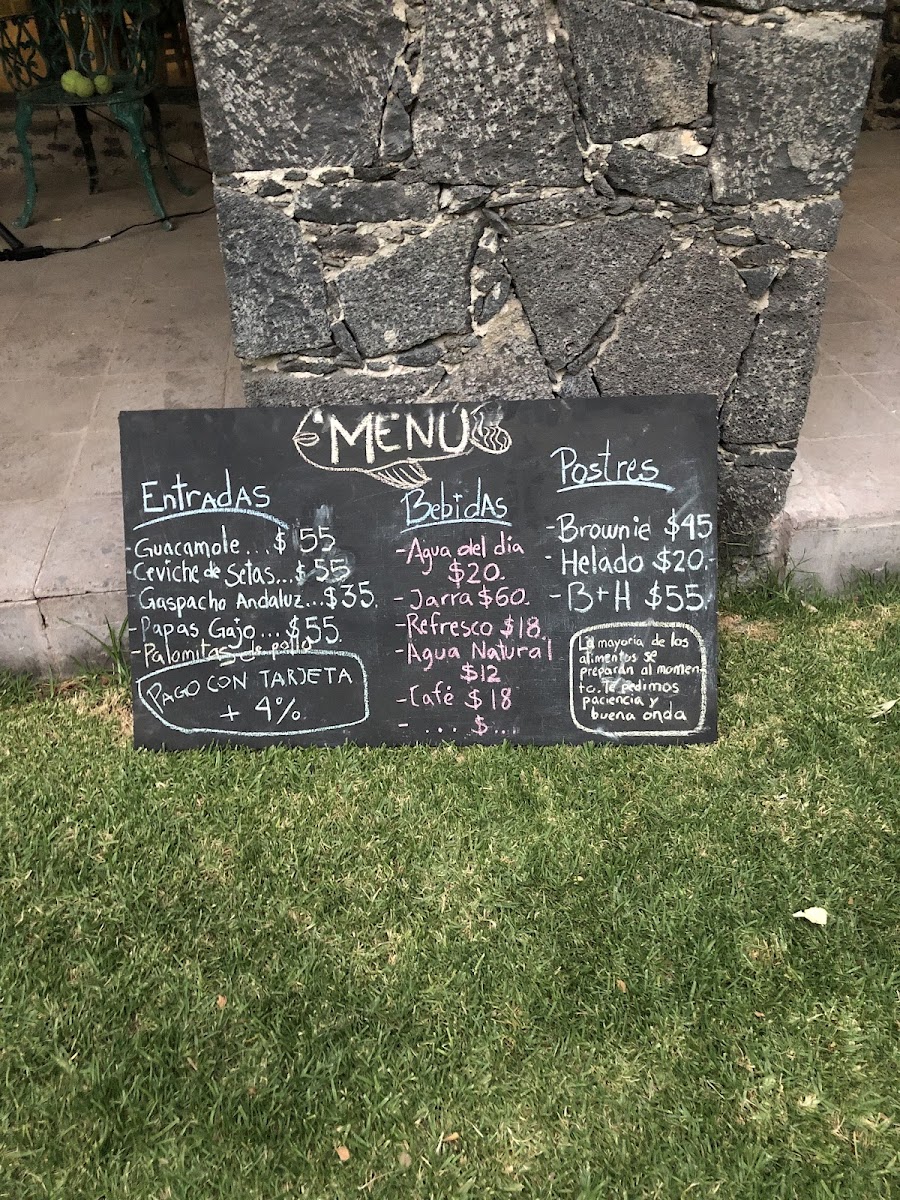 MENÚ
Entradas
-Guacamole...$ 55
-Ceviche de Setas...$ 55
-Gaspacho Andaluz...$35.
-Papas Gajo...$55.
-Palomitas de pollo
PAGO CON TARJETA
+ 4%.
Bebidas
-Agua del dia
$20.
-Jarra $60.
-Refresco $18.
-Agua Natural
$12
-Café $18
- ... $...
Postres
-Brownie $45
-Helado $20.
-B+H $55.
La mayoría de los
alimentos se
preparan al momen-
to. Te pedimos
paciencia y
buena onda